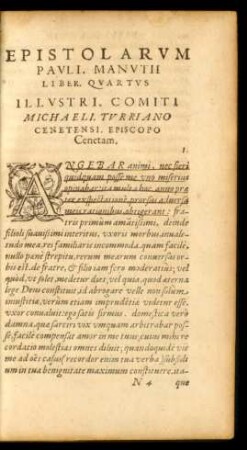 EPISTOLARVM
PAVLI. MANVTII
LIBER. QVARTVS
ILLVSTRI. COMITI
MICHAELI. TVRRIANO
CENETENSI. EPISCOPO
Cenetam.
1.
ANGEBAR animi, nec fieri
quidquam posse me uno miserius
opinabar: ita multa hoc anno præ
ter exspectationem, prorsus aduersa
meis rationibus obtigerant: fra
tris primum amātissimi, deinde
filioli suauissimi interitus, uxoris morbus, ualitu
tudo mea, res familiaris incommoda. quam facile,
nullo pæne strepitu, rerum mearum conuersus or-
bis est. de fratre, & filio iam fero moderatius; uel
quòd, ut solet, medetur dies; uel quia, quod æterna
lege Deus constituit, id abrogare uelle non solum
iniustitia, uerùm etiam impudentia uidetur esse.
uxor conualuit: ego satis firmus. domestica uerò
damna, quæ sarciri uix umquam arbitrabar pos-
se, facile compensat amor in me tuus, cuius mihi re
cordatio molestias omnes diluit, quandoquidem uis
me ad oēs casus recordor enim tua uerba subsidi
um in tua benignitate maximum constituere. ita-
N 4 que